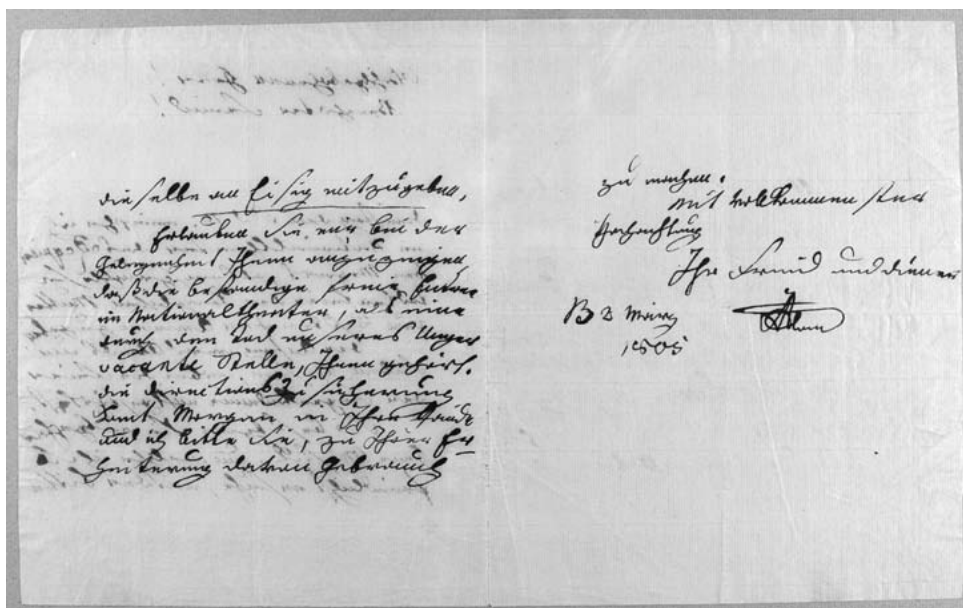 dieselbe an Eisig mitzugeben,
Erlauben Sie mir bei der
Gelegenheit Ihnen anzuzeigen
daß die beständige freie Entree
im Nationaltheater, als eine
durch, den Tod unseres Unger
vacante Stelle, Ihnen gehört.
die Directions Zusicherung
komt Morgen in Ihre Hände
und ich bitte Sie, zu Ihrer Er=
heiterung davon Gebrauch
zu machen.
Mit vollkommenster
Hochachtung
Ihr Freund und diener
B 3 März
1805